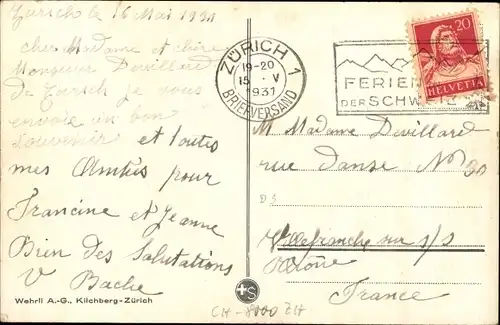 Zürich le 16 Mai 1931
cher Madame et chère
Monsieur Devillard
De Zurich je vous
envoie un bon
Souvenir et toutes
mes Amitiés pour
Francine et Jeanne
Bien des Salutations
V Bache
Wehrli A.-G., Kilchberg-Zürich
ZÜRICH 1
19-20
15. V
1931
BRIEFVERSAND
FERIEN
DER SCHWEIZ
20
HELVETIA
M Madame Devillard
rue Danse No 30
D3
Villefranche sur s/s
Rhône
France
+S
CH-8000 ZH